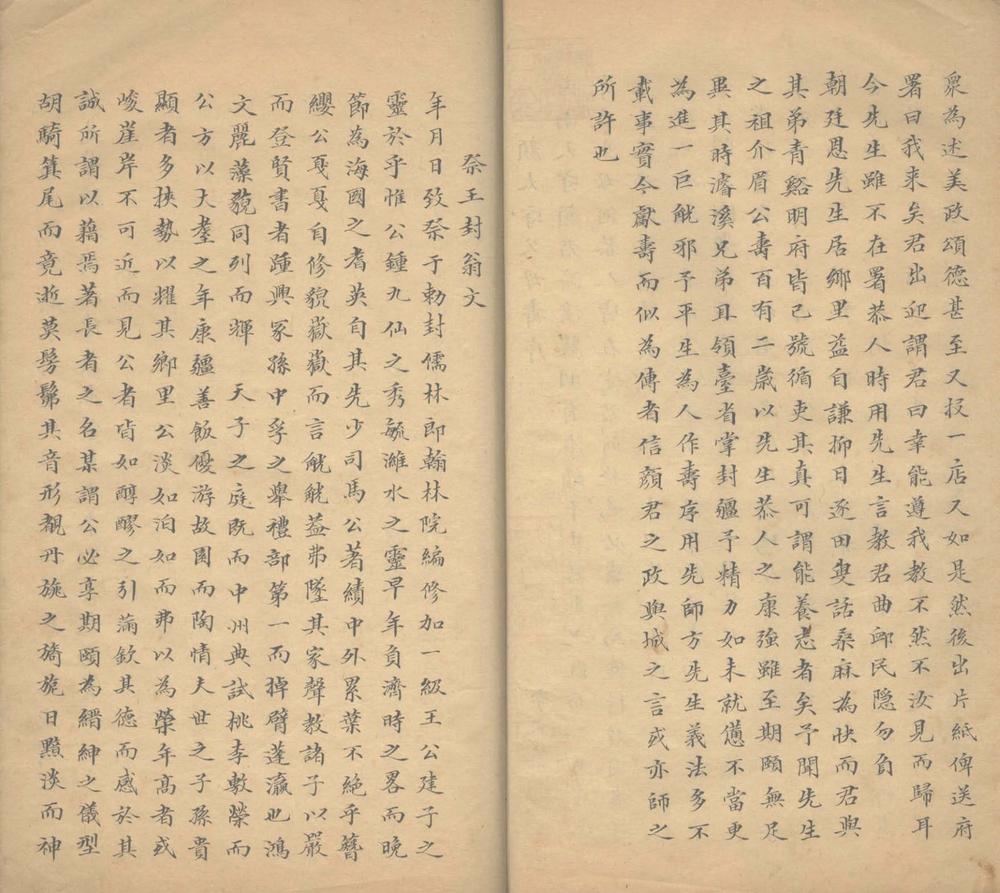 衆為述美政頌德甚至又投一店又如是然後出片紙俾送府
署曰我来矣君出迎謂君曰幸能遵我教不然不汝見而歸耳
今先生雖不在署恭人時用先生言教君曲卹民隐勿負
朝廷恩先生居鄉里益自謙抑日逐田叟話桑麻為快而君與
其弟青谿明府皆已號循吏其真可謂能養志者矣予聞先生
之祖介眉公壽百有二歲以先生恭人之康強雖至期頤無足
異其時濬溪兄弟且領臺省掌封疆予精力如未就憊不當更
為進一巨觥邪予平生為人作壽序用先師方先生義法多不
載事實今獻壽而似為傳者信顏君之政與城之言或亦師之
所許也
祭王封翁文
年月日致祭于勅封儒林郎翰林院編修加一級王公建子之
靈於乎惟公鍾九仙之秀毓濰水之靈早年負濟時之畧而晚
節為海國之耆英自其先少司馬公著績中外累葉不絕乎簪
纓公戛戛自修貌嶽嶽而言觥觥益弗墜其家聲教諸子以嚴
而登賢書者踵興冢孫中孚之舉禮部第一而掉臂蓬瀛也鴻
文麗藻競同列而輝　天子之庭既而中州典試桃李敷榮而
公方以大耋之年康疆善飯優游故園而陶情夫世之子孫貴
顯者多挾勢以耀其鄉里公淡如泊如而弗以為榮年高者或
峻崖岸不可近而見公者皆如醇醪之引滿欽其德而感於其
誠所謂以藉焉著長者之名某謂公必享期頤為縉紳之儀型
胡騎箕尾而竟逝莫髣髴其音形覩丹旐之旖旎日黯淡而神